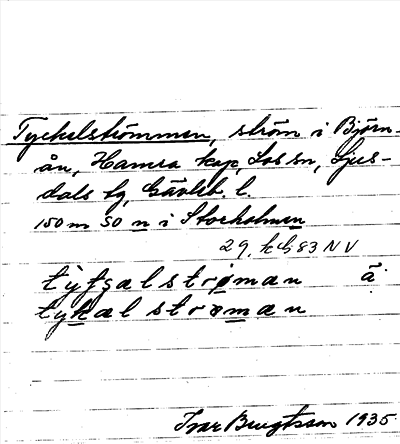 Tyckelströmmen, ström i Björn-
ån, Hamra kap, Los sn, Ljus-
dals tg, Gävleb. l.
150 m SO n i Storholmen
29. kb 83 NV
tykæl strømæn
Ivar Bengtsson 1935